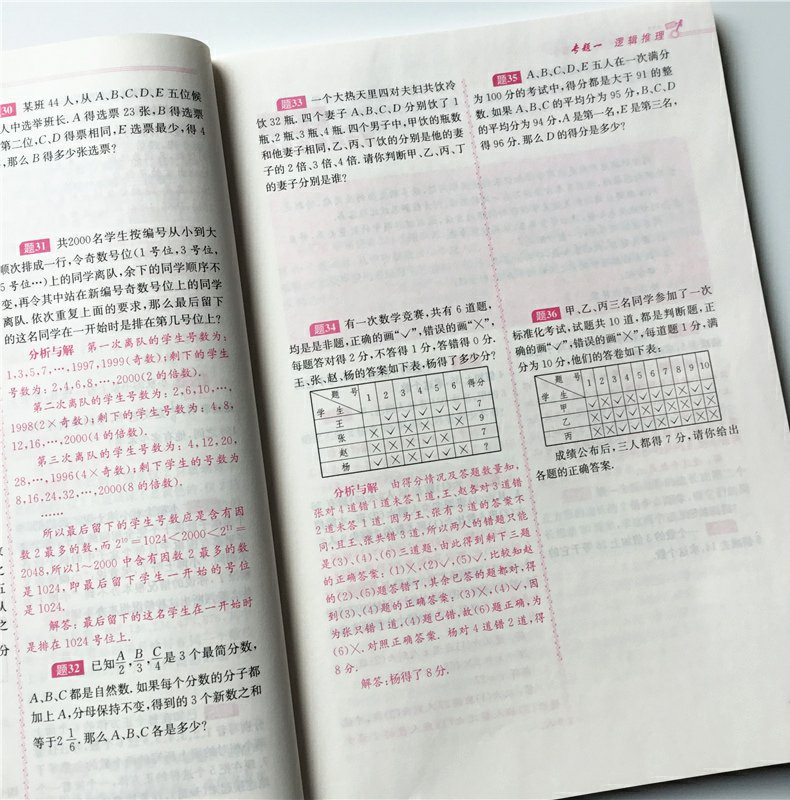 题30 某班 44 人,从 A、B、C、D、E 五位候
人中选举班长. A 得选票 23 张, B 得选票
第二位, C、D 得票相同, E 选票最少,得 4
,那么 B 得多少张选票?
题31 共2000名学生按编号从小到大
顺次排成一行,令奇数号位(1 号位,3 号位,
5 号位…)上的同学离队,余下的同学顺序不
变,再令其中站在新编号奇数号位上的同学
离队. 依次重复上面的要求,那么最后留下
的这名同学在一开始时是排在第几号位上?
分析与解 第一次离队的学生号数为:
1,3,5,7,…,1997,1999(奇数);剩下的学生
号数为: 2,4,6,8,…,2000(2 的倍数).
第二次离队的学生号数为: 2,6,10,…,
1998(2×奇数);剩下的学生号数为: 4,8,
12,16,…,2000(4 的倍数).
第三次离队的学生号数为: 4,12,20,
28,…,1996(4×奇数);剩下学生的号数为
8,16,24,32,…,2000(8 的倍数).
……
所以最后留下的学生号数应是含有因
数 2 最多的数,而 2¹⁰=1024<2000<2¹¹=
2048,所以1~2000 中含有因数 2 最多的数
是 1024, 即最后留下学生一开始的号位
是 1024.
解答: 最后留下的这名学生在一开始时
是排在 1024 号位上.
题32 已知A/2,B/3,C/4是 3 个最简分数,
A、B、C 都是自然数. 如果每个分数的分子都
加上 A,分母保持不变,得到的 3 个新数之和
等于2 1/6. 那么 A、B、C 各是多少?
专题一 逻辑推理
题33 一个大热天里四对夫妇共饮冷
饮 32 瓶. 四个妻子 A、B、C、D 分别饮了 1
瓶、2 瓶、3 瓶、4 瓶. 四个男子中,甲饮的瓶数
和他妻子相同,乙、丙、丁饮的分别是他的妻
子的 2 倍、3 倍、4 倍. 请你判断甲、乙、丙、丁
的妻子分别是谁?
题34 有一次数学竞赛,共有 6 道题,
均是是非题,正确的画“√”,错误的画“×”,
每题答对得 2 分,不答得 1 分,答错得 0 分.
王、张、赵、杨的答案如下表,杨得了多少分?
题号 学生 1 2 3 4 5 6 得分
王 7
张 9
赵 7
杨 ?
分析与解 由得分情况及答题数量知,
张对 4 道错 1 道未答 1 道,王、赵各对 3 道错
2 道未答 1 道. 因为王、张有 3 道的答案不
同,且王、张共错 3 道,所以两人的错题只能
是(3)、(4)、(6)三道题,由此得到剩下三题
的正确答案: (1)×,(2)√,(5)√. 比较知赵
的(2)、(5)题答错了,其余已答的题都对,得
到(3)、(4)题的正确答案: (3)×,(4)√,因
为张只错 1 道,(4)题已错,故(6)题正确,为
(6)×. 对照正确答案. 杨对 4 道错 2 道,得
8 分.
解答:杨得了 8 分.
题35 A、B、C、D、E 五人在一次满分
为 100 分的考试中,得分都是大于 91 的整
数. 如果 A、B、C 的平均分为 95 分, B、C、D
的平均分为 94 分, A 是第一名, E 是第三名,
得 96 分. 那么 D 的得分是多少?
题36 甲、乙、丙三名同学参加了一次
标准化考试,试题共 10 道,都是判断题,正
确的画“√”,错误的画“×”,每道题 1 分,满
分为 10 分,他们的答卷如下表:
题号 学生 1 2 3 4 5 6 7 8 9 10
甲
乙
丙
成绩公布后,三人都得 7 分,请你给出
各题的正确答案.